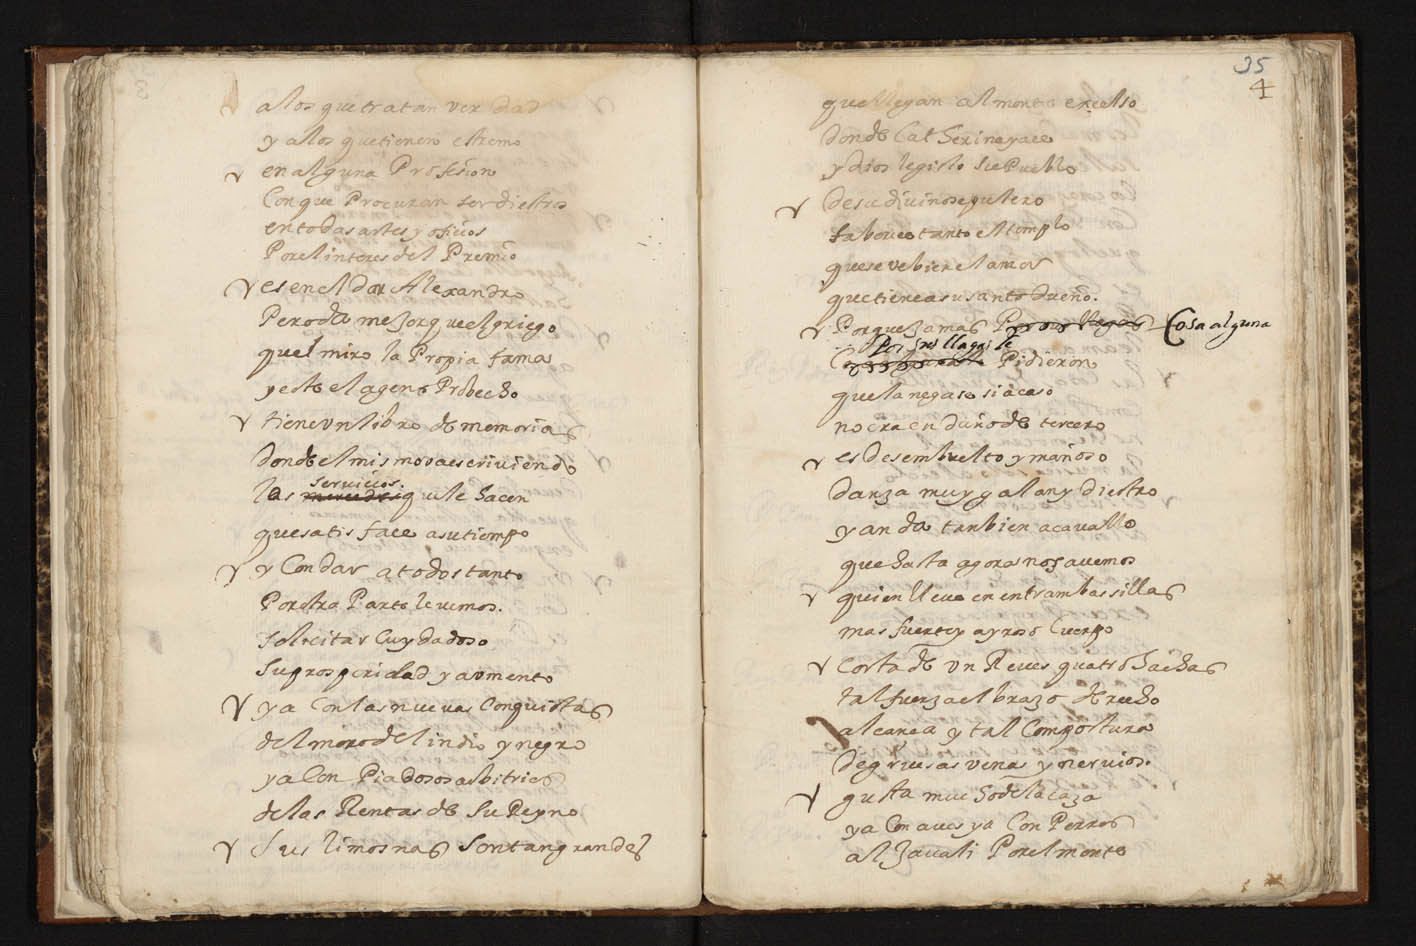 a los que tratan verdad
y a los que tienen estremo
en alguna Profesion
Con que Procuran ser diestros
en todas artes y oficios
Por el interes del Premio
es en el dar Alexandro
Pero da mejor que el griego
quel miro la Propia fama
y este el ageno Probecho
tiene vn libro de memorias
donde el mismo va escriuiendo
las servicios. que le hacen
que satisface a su tiempo
y Con dar a todos tanto
Por otra Parte le vemos.
solicitar Cuydadoso
Su prosperidad y aumento
ya Con las nueuas Conquistas
del moro del indio y negro
ya Con Piadosos arbitrios
de las Rentas de Su Reyno
Sus limosnas Son tan grandes
35
4
que llegan al monte excelso
donde Catherina yace
y dios legislo Su Pueblo
de su diuino sepulcro
faborece tanto el templo
que se ve bien el amor
que tiene a su santo dueño.
Porque Jamas Cosa alguna
Por sus llagas le
Pidieron
que la negase si acaso
no era en daño de tercero
es desembuelto y mañoso
danza muy galan y diestro
y anda tanbien a cauallo
que hasta agora no sauemos
quien lleue en entrambas sillas
mas fuerte y ayroso Cuerpo
Corta de vn Reues quatro hachas
tal fuerza el brazo derecho
alcanza y tal Compostura
de gruesas venas y neruios.
gusta mucho de la caza
ya Con aues ya Con Perros
al Jauali Por el monte